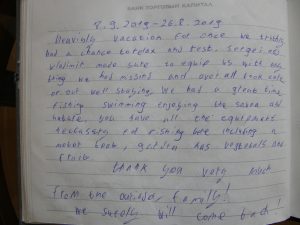 БАНК ТОРГОВЫЙ КАПИТАЛ
8.9.2019-26.8.2019
Heavenly vacation for once we
had a chance to relax and rest. Sergei and
Vladimir made sure to equip us with
thing we had missing and over all took care
of our well staying. We had a great time
fishing swimming enjoying the sauna and
nature. you have all the equipment
necessary for fishing here including a
motor boat, garden has vegetables and
fruit.
thank you very much
from the family!
we surely will come back!